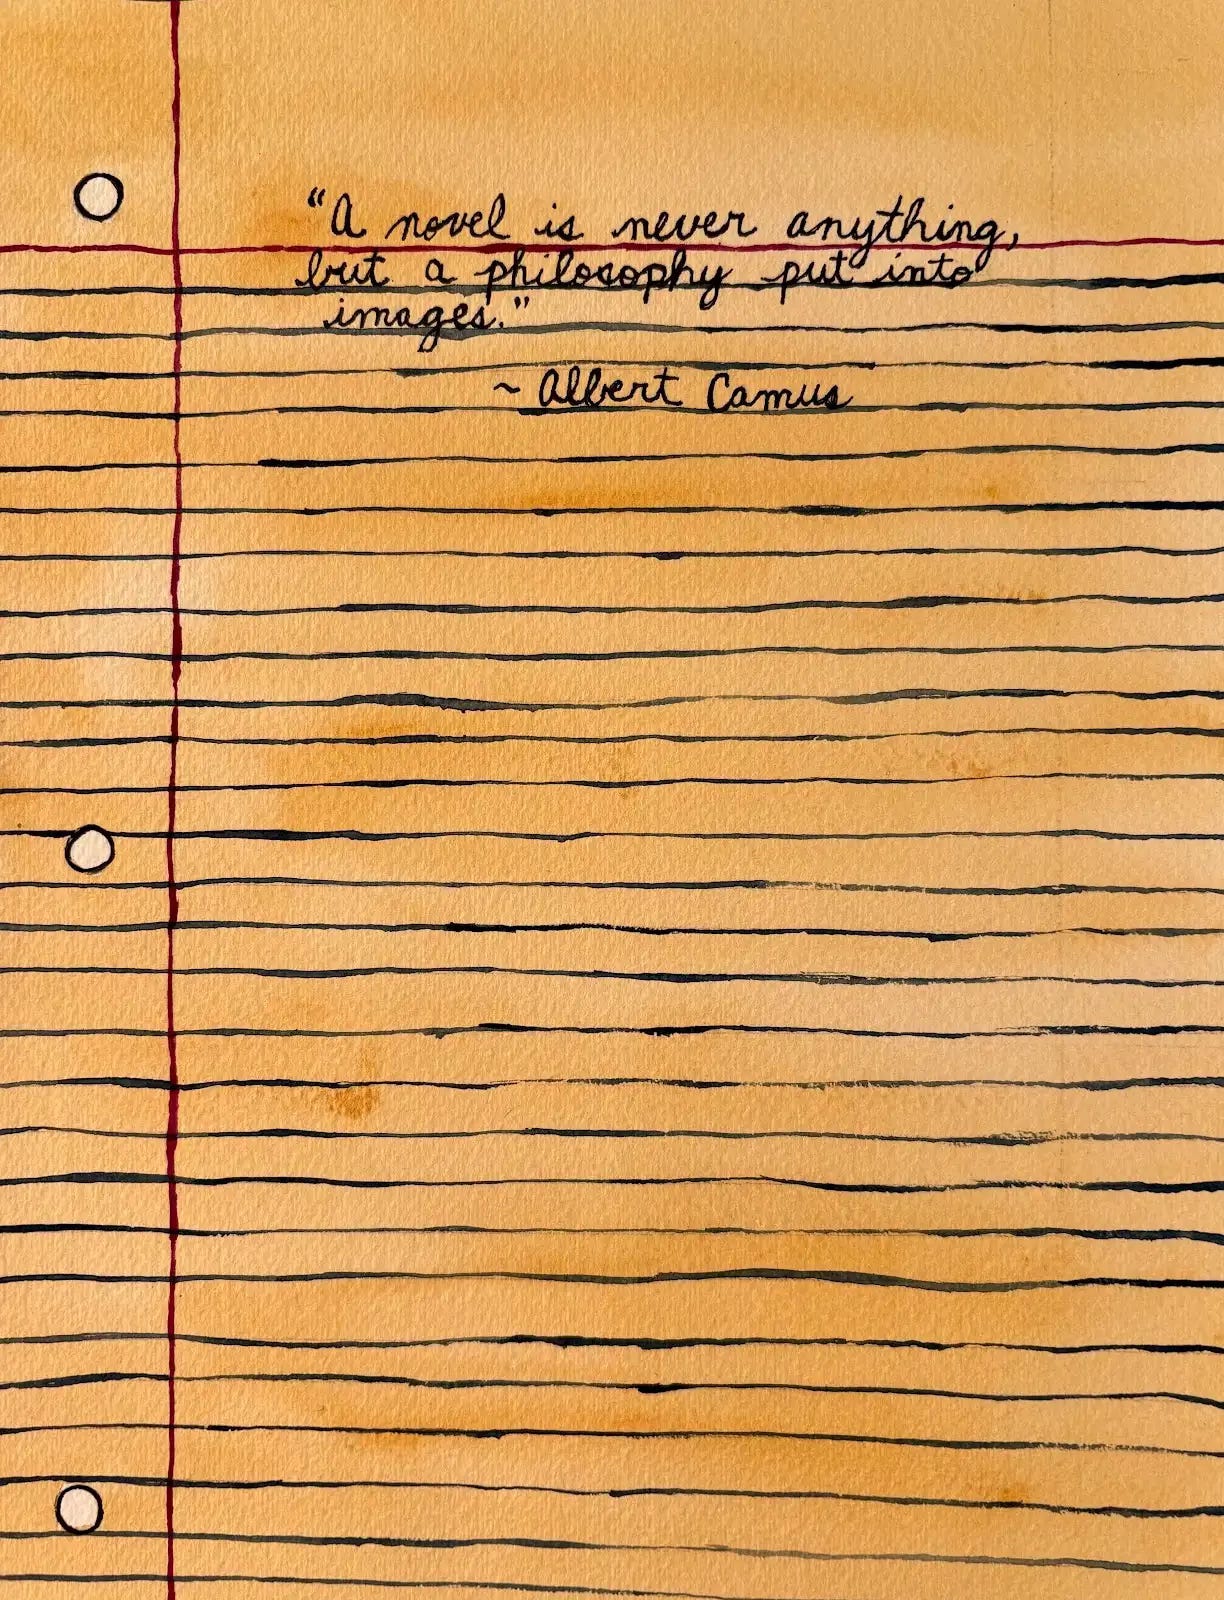 “A novel is never anything,
but a philosophy put into
images.”
~ Albert Camus